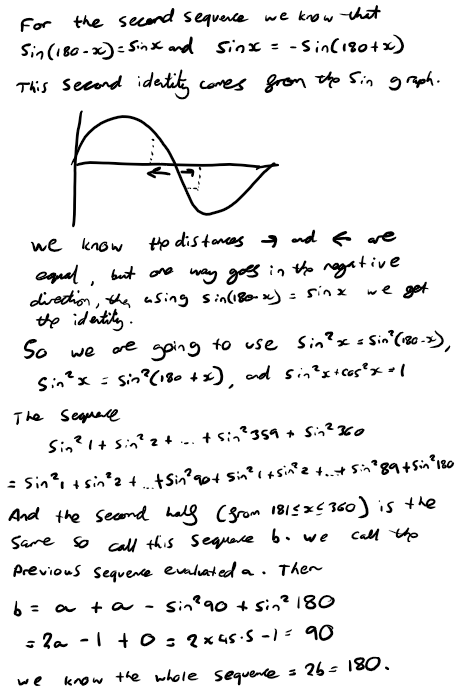 For the second sequence we know that
Sin(180-x)=Sinx and Sinx = -Sin(180+x)
This second identity comes from the Sin graph.
we know the distances → and ← are
equal, but one way goes in the negative
direction, then using sin(180-x) = sinx we get
the identity.
So we are going to use Sin²x = Sin²(180-x),
Sin²x = Sin²(180+x), and Sin²x+cos²x=1
The Sequence
Sin²1 + Sin²2 + ... + Sin²359 + Sin²360
= Sin²1 + Sin²2 + ... + Sin²90 + Sin²1 + Sin²2 + ... + Sin²89 + Sin²180
And the second half (from 181≤x≤360) is the
Same so call this sequence b. we call the
Previous Sequence evaluated a. Then
b = a + a - Sin²90 + Sin²180
= 2a - 1 + 0 = 2×45.5-1 = 90
we know the whole sequence = 2b = 180.